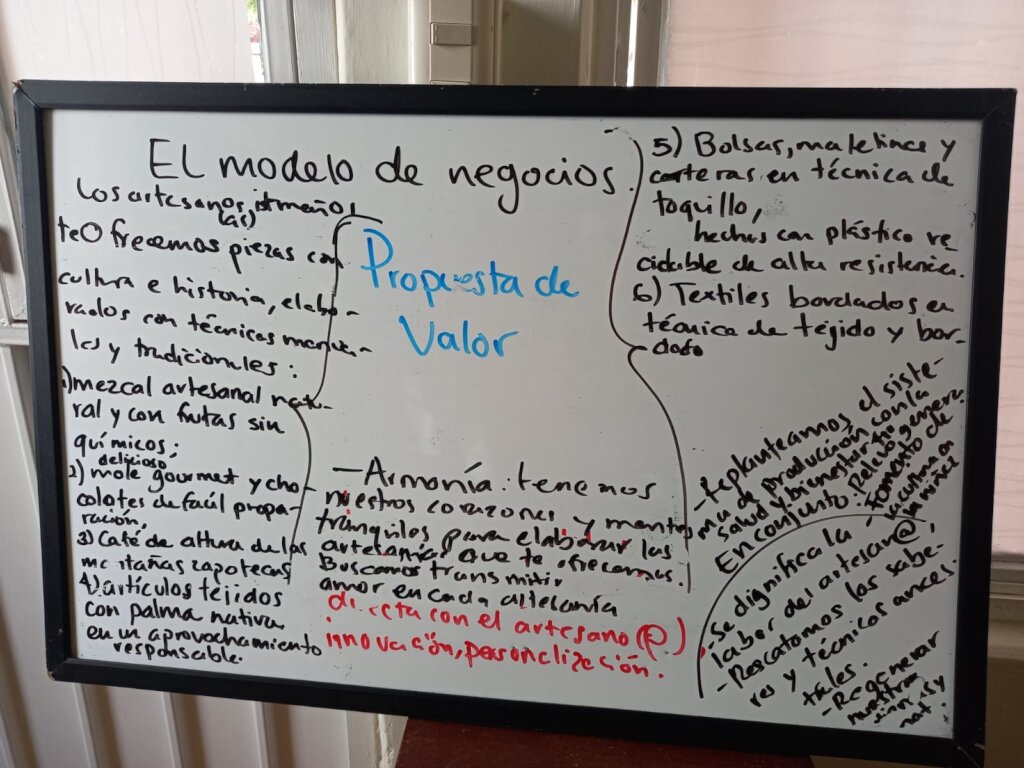 El modelo de negocios.
Los artesanos istmeños
(as)
te Ofrecemos piezas con
cultura e historia, elabo-
rados con técnicas manua-
les y tradicionales:
1) mezcal artesanal natu-
ral y con frutas sin
químicos;
delicioso
2) mole gourmet y cho-
colates de fácil prepa-
ración,
3) Café de altura de las
montañas zapotecas
4) artículos tejidos
con palma nativa
en un aprovechamiento
responsable.
Propuesta de
Valor
- Armonía: tenemos
nuestros corazones y mentes
tranquilos para elaborar las
artesanías que te ofrecemos.
Buscamos transmitir
amor en cada artesanía
directa con el artesano (@)
innovación, personalización.
5) Bolsas, maletines y
carteras en técnica de
toquillo,
hechas con plástico re
ciclable de alta resistencia.
6) Textiles bordados en
técnica de tejido y bor-
dado
- replanteamos el siste-
ma de producción con la
salud y bienestar
En conjunto. Relevo genera
- Fomento de
la cultura en
la niñez
Se dignifica la
labor del artesan@,
- Rescatamos los sabe-
res y técnicas ances-
trales.
- Regenerar
nuestra
y
nat.